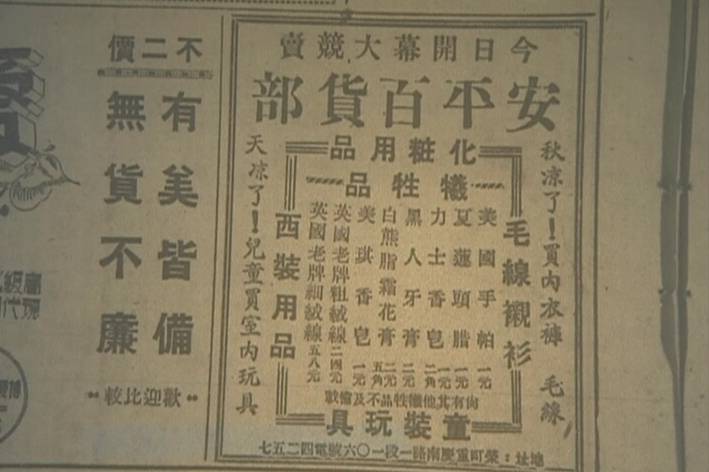 今日開幕大競賣
安平百貨部
化粧用品
犧牲品
秋凉了！買內衣褲 毛線
毛線襯衫
美國手帕 一元
夏蓮頭腊 一元
力士香皂 一元二角
黑人牙膏 二元
白熊脂霜花膏 二元五角
美琪香皂 一元
英國老牌粗絨線 二四元
英國老牌細絨線 五八元
西裝用品
天凉了！兒童買室內玩具
尚有其他犧牲品不及備載
童裝玩具
地址：榮町重慶南路一段一〇六號電四二五七
不二價
有美皆備
無貨不廉
歡迎比較